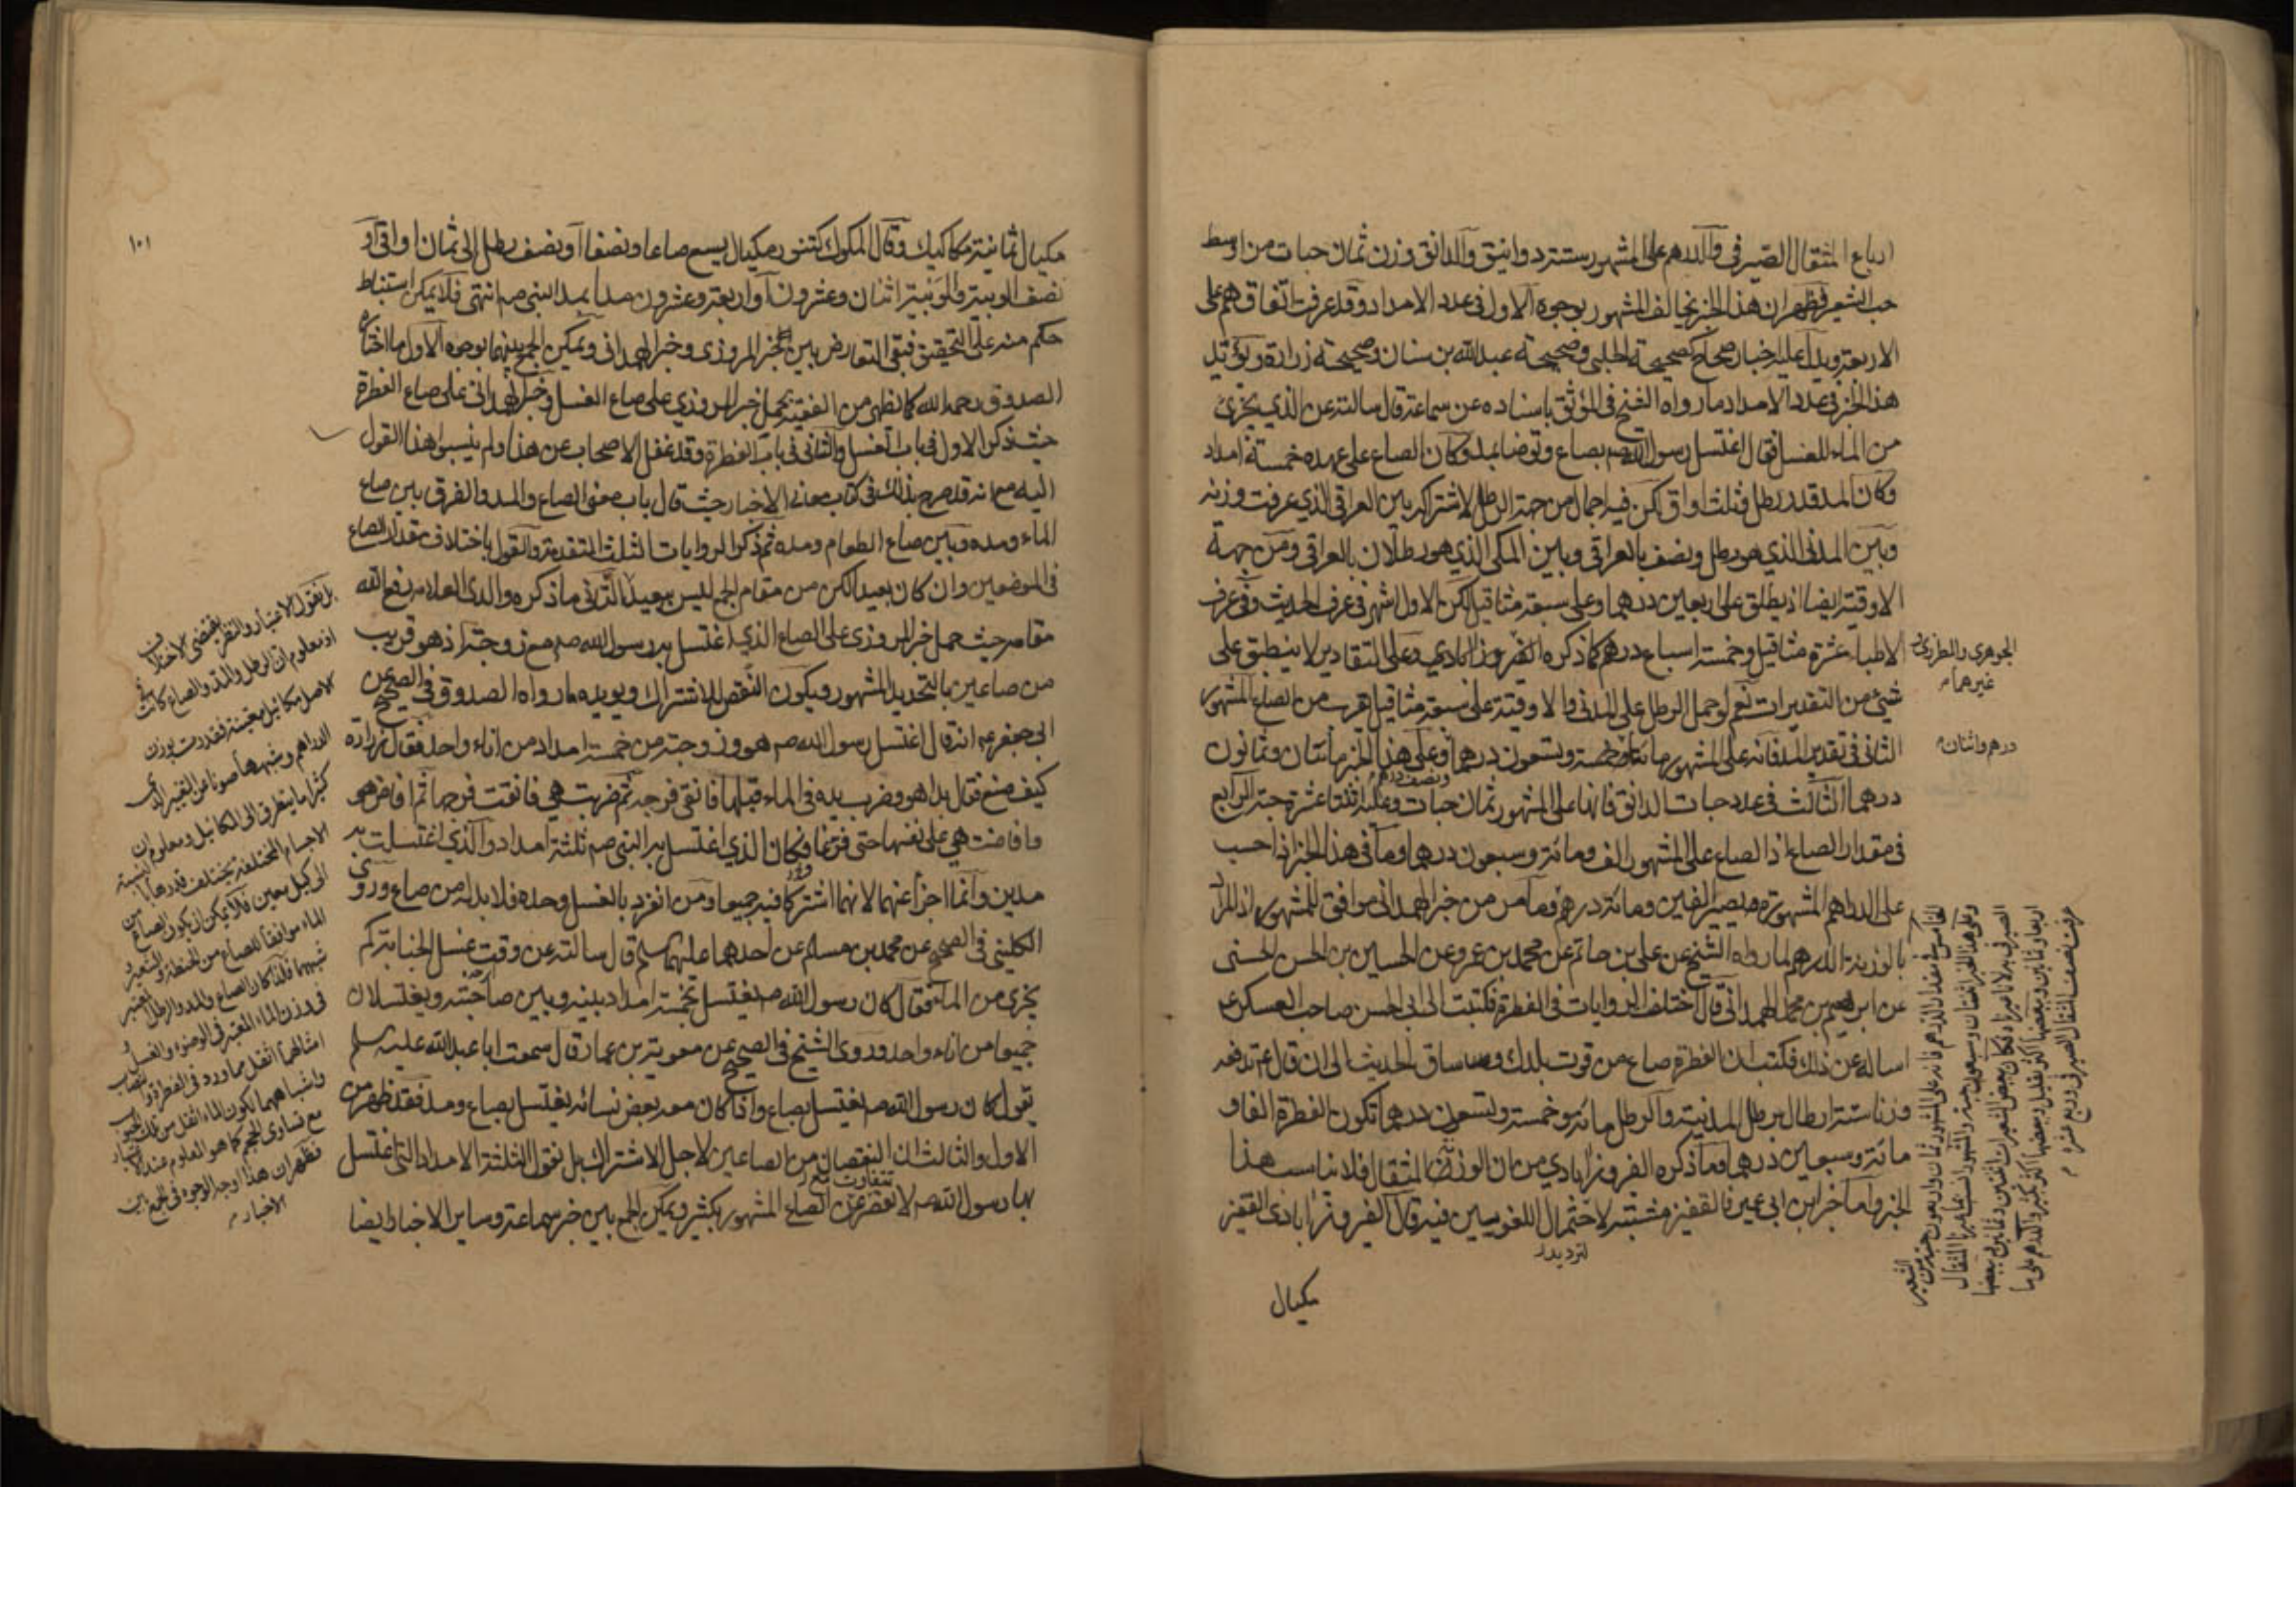 ارباع المثقال الصيرفى والدرهم على المشهور ستة دوانيق والدانق وزن ثمان حبات من اوسط
حب الشعير فظهر ان هذا الخبر يخالف المشهور بوجوه الاول فى عدد الامداد وقد عرفت اتفاقهم على
الاربعة ويدل عليه اخبار صحاح كصحيحة الحلبى وصحيحة عبد الله بن سنان وصحيحة زرارة ويؤيد
هذا الخبر فى عدد الامداد ما رواه الشيخ فى الموثق باسناده عن سماعة قال سالته عن الذى يجزى
من الماء للغسل فقال اغتسل رسول الله صم بصاع وتوضا بمد وكان الصاع على عهده خمسة امداد
وكان المد قدر رطل وثلث اواق لكن فيه اجمال من جهة الرطل لاشتراكه بين العراقى الذى عرفت وزنه
وبين المدنى الذى هو رطل ونصف بالعراقى وبين المكى الذى هو رطلان بالعراقى ومن جهة
الاوقية ايضا اذ يطلق على اربعين درهما وعلى سبعة مثاقيل لكن الاول اشهر فى عرف الحديث وفى عرف
الاطباء عشرة مثاقيل وخمسة اسباع درهم كما ذكره الفيروزابادى وعلى التقادير لا ينطبق على
الجوهرى والمطرزى
غيرهما م
شئ من التقديرات نعم لو حمل الرطل على المدنى والاوقية على سبعة مثاقيل قرب من الصاع المشهور
الثانى فى تقدير المد فانه على المشهور مائتا وخمسة وتسعون درهما وعلى هذا الخبر مأتان وثمانون
درهم واثنان م
ونصف درهم
درهما الثالث فى عدد حبات الدانق فانها على المشهور ثمان حبات وعليه اثنتا عشرة حبة الرابع
فى مقدار الصاع اذ الصاع على المشهور الف ومائة وسبعون درهما وما فى هذا الخبر اذا حسب
على الدراهم المشهورة يصير الفين ومائة درهم وما مر من خبر الهمدانى موافق للمشهور اذ المراد
بالوزنة الدرهم لما رواه الشيخ عن على بن حاتم عن محمد بن عمرو عن الحسين بن الحسن الحسنى
عن ابرهيم بن محمد الهمدانى قال اختلف الروايات فى الفطرة فكتبت الى ابى الحسن صاحب العسكر ع
اساله عن ذلك فكتب ان الفطرة صاع من قوت بلدك وساق الحديث الى ان قال ع تدفعه
وزنا ستة ارطال برطل المدينة والرطل مائة وخمسة وتسعون درهما تكون الفطرة الفا و
مائة وسبعين درهما وما ذكره الفيروزابادى من ان الوزنة المثقال فلا يناسب هذا
الخبر واما خبر ابن ابى عمير فالقفيز مشتبه لاحتمال اللغويين فيه قال الفيروزابادى القفيز
لترديد
مكيال
القاموس فى مقدار الدرهم فانه على المشهور ثمان واربعون حبة من الشعير
وعلى هذا الخبر اثنتان وسبعون حبة والمشهور انسب
الصيرفى
عرفت نصف المثقال الصيرفى وربع عشره م
١٠١
مكيال ثمانية مكاكيك وقال المكوك كتنور مكيال يسع صاعا ونصفا او نصف رطل الى ثمان اواقى او
نصف الويبة والويبة اثنان وعشرون او اربعة وعشرون مدا بمد النبى صم انتهى فلا يمكن استنباط
حكم منه على التحقيق فبقى التعارض بين خبر المروزى وخبر الهمدانى ويمكن الجمع بينهما بوجوه الاول ما اختاره
الصدوق رحمه الله كما يظهر من الفقيه بحمل خبر المروزى على صاع الغسل وخبر الهمدانى على صاع الفطرة
حيث ذكر الاول فى باب الغسل والثانى فى باب الفطرة وقد غفل الاصحاب عن هذا ولم ينسبوا هذا القول
اليه مع انه قد صرح بذلك فى كتاب معانى الاخبار حيث قال باب معنى الصاع والمد والفرق بين صاع
الماء ومده وبين صاع الطعام ومده ثم ذكر الروايات الثلث المتقدمة والقول باختلاف مقدار الصاع
فى الموضعين وان كان بعيدا لكن من مقام الجمع ليس ببعيد الثانى ما ذكره والدى العلامة رفع الله
مقامه حيث حمل خبر المروزى على الصاع الذى اغتسل به رسول الله صم مع زوجته اذ هو قريب
من صاعين بالتحديد المشهور ويكون النقص للاشتراك ويؤيده ما رواه الصدوق فى الصحيح عن
ابى جعفر ع انه قال اغتسل رسول الله صم هو وزوجته من خمسة امداد من اناء واحد فقال زرارة
كيف صنع فقال بدا هو وضرب يده فى الماء قبلها فانقى فرجه ثم ضربت هى فانقت فرجها ثم افاض هو
وافاضت هى على نفسها حتى فرغا وكان الذى اغتسل به النبى صم ثلثة امداد والذى اغتسلت به
مدين وانما اجزا عنهما لانهما اشتركا فيه جميعا ومن انفرد بالغسل وحده فلا بد له من صاع وروى
الكلينى فى الصحيح عن محمد بن مسلم عن احدهما عليهما السلم قال سالته عن وقت غسل الجنابة كم
يجزى من الماء فقال كان رسول الله صم يغتسل بخمسة امداد بينه وبين صاحبته ويغتسلان
جميعا من اناء واحد وروى الشيخ فى الصحيح عن معوية بن عمار قال سمعت ابا عبد الله عليه السلم
يقول كان رسول الله صم يغتسل بصاع واذا كان معه بعض نسائه يغتسل بصاع ومد فقد ظهر من
الاول والثالث ان النقصان من الصاعين لاجل الاشتراك بل نقول الثلثة الامداد التى اغتسل
بها رسول الله صم لا نقصر عن الصاع المشهور بكثير ويمكن الجمع بين خبر سماعة وساير الاخبار ايضا
بل نقول الاعتبار والنظر يقتضى الاختلاف
اذ معلوم ان الرطل والمد والصاع كانت فى
الاصل مكائيل معينة فقدرت بوزن
الدراهم وشبهها صونا عن التغيير الذى
كثيرا ما يتطرق الى المكائيل ومعلوم ان
الاجسام المختلفة يختلف قدرها بالنسبة
الى كيل معين فلا يمكن ان يكون الصاع من
الماء موافقا للصاع من الحنطة والشعير و
شبههما فلذا كان الصاع والمد والرطل المعتبر
فى وزن الماء المعتبر فى الوضوء والغسل و
امثالهما اثقل مما ورد فى الفطرة والنصاب
واشباههما لكون الماء اثقل من تلك الحبوب
مع تساوى الحجم كما هو المعلوم عند الاعتبار
فظهر ان هذا اوجه الوجوه فى الجمع بين
الاخبار م